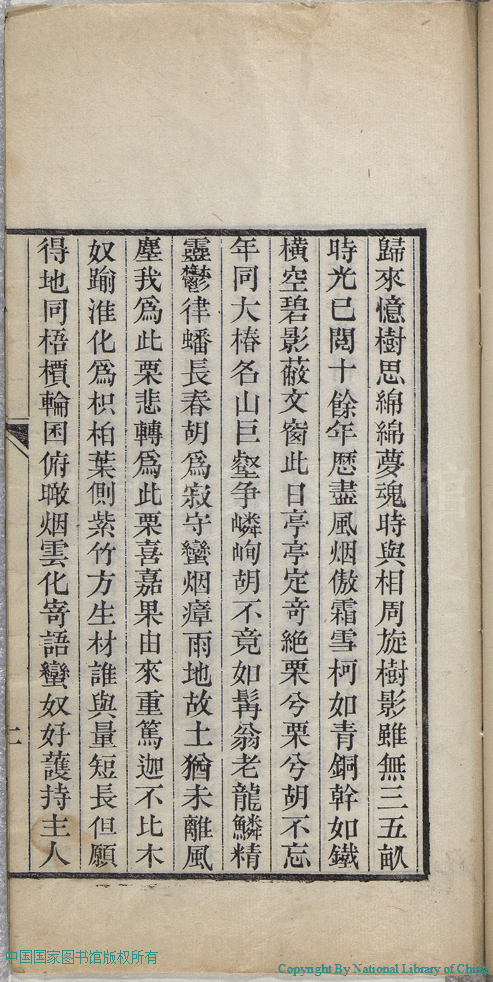 歸來憶樹思綿綿夢魂時與相周旋樹影雖無三五畝
時光已閲十餘年歴盡風烟傲霜雪柯如青銅幹如鐵
橫空碧影蔽文窗此日亭亭定竒絶栗兮栗兮胡不忘
年同大椿名山巨壑争嶙峋胡不竟如髯翁老龍鱗精
靈鬱律蟠長春胡爲寂守蠻烟瘴雨地故土猶未離風
塵我爲此栗悲轉爲此栗喜嘉果由來重篤迦不比木
奴踰淮化爲枳柏葉側紫竹方生材誰與量短長但願
得地同梧檟輪囷俯瞰烟雲化寄語蠻奴好護持主人
二
中国国家图书馆版权所有
Copyright By National Library of China